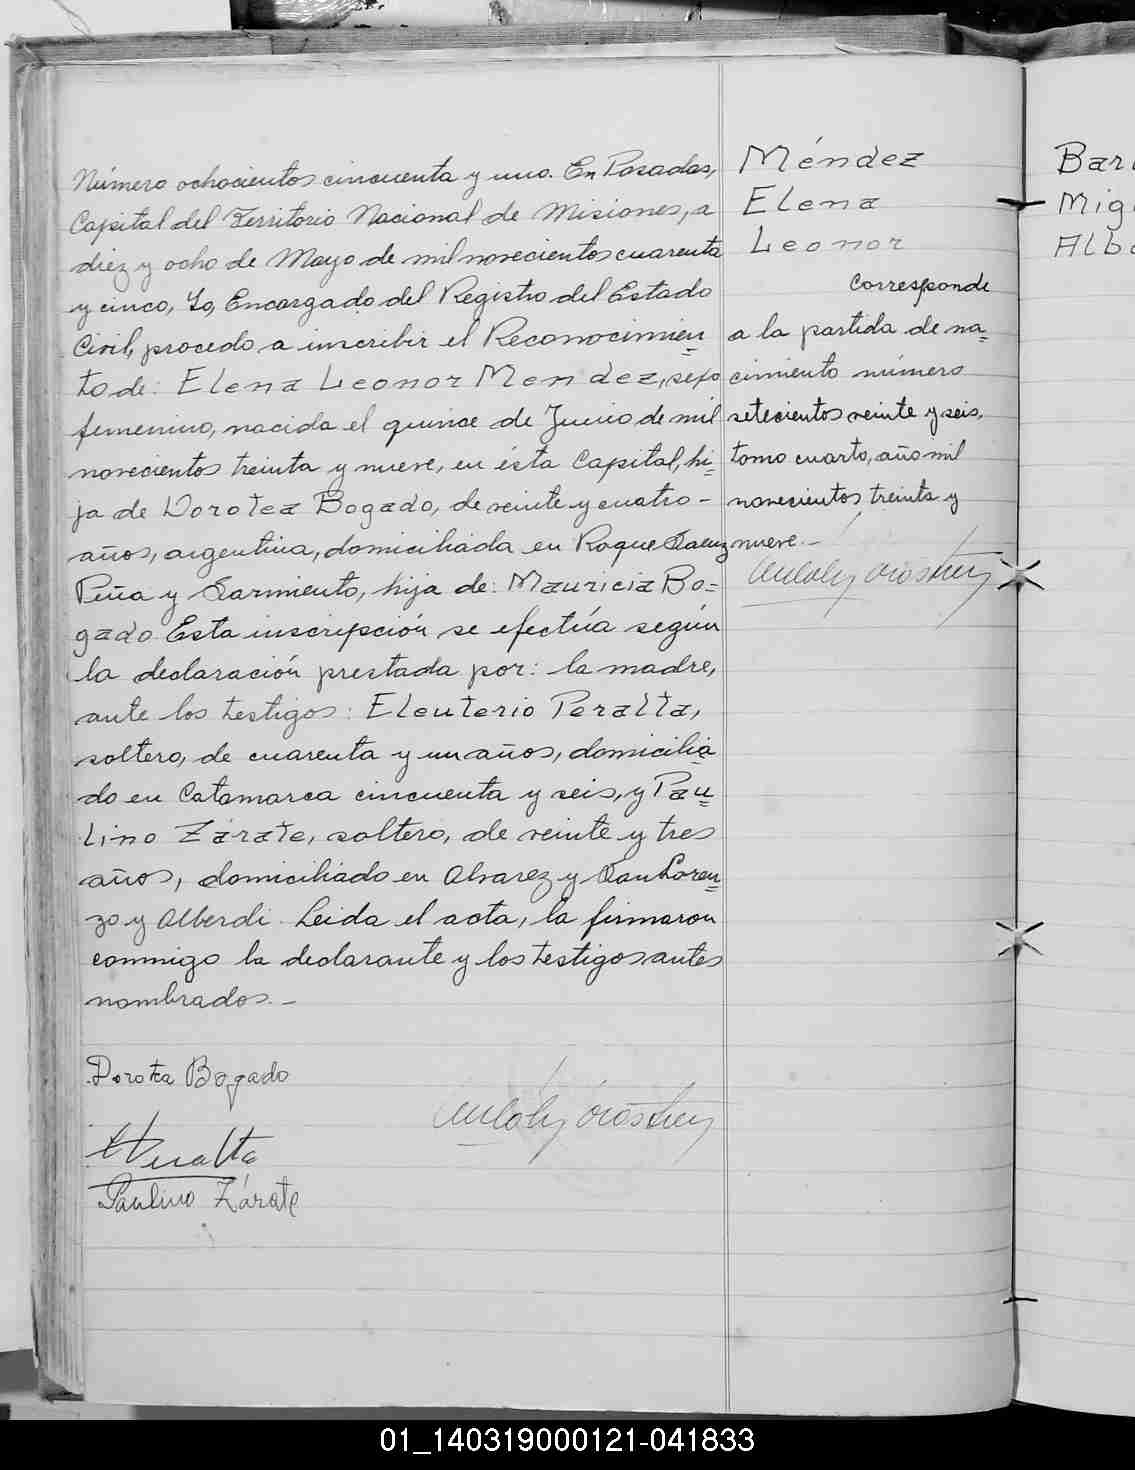 Número ochocientos cincuenta y uno. En Posadas,
Capital del Territorio Nacional de Misiones, a
diez y ocho de Mayo de mil novecientos cuarenta
y cinco, Yo, Encargado del Registro del Estado
Civil, procedo a inscribir el Reconocimien=
to de: Elena Leonor Mendez, sexo
femenino, nacida el quince de Junio de mil
novecientos treinta y nueve, en ésta Capital, hi=
ja de Dorotea Bogado, de veinte y cuatro -
años, argentina, domiciliada en Roque Saenz
Peña y Sarmiento, hija de: Mauricia Bo=
gado. Esta inscripción se efectúa según
la declaración prestada por: la madre,
ante los testigos: Eleuterio Peralta,
soltero, de cuarenta y un años, domicilia
do en Catamarca cincuenta y seis, y Pau=
lino Zárate, soltero, de veinte y tres
años, domiciliado en Alvarez y San Loren=
zo y Alberdi. Leida el acta, la firmaron
conmigo la declarante y los testigos antes
nombrados.-
Dorotea Bogado
Peralta
Paulino Zárate
Méndez
Elena
Leonor
Corresponde
a la partida de na=
cimiento número
setecientos veinte y seis,
tomo cuarto, año mil
novecientos treinta y
nueve.-
Bar
Mig
Alb
01_140319000121-041833